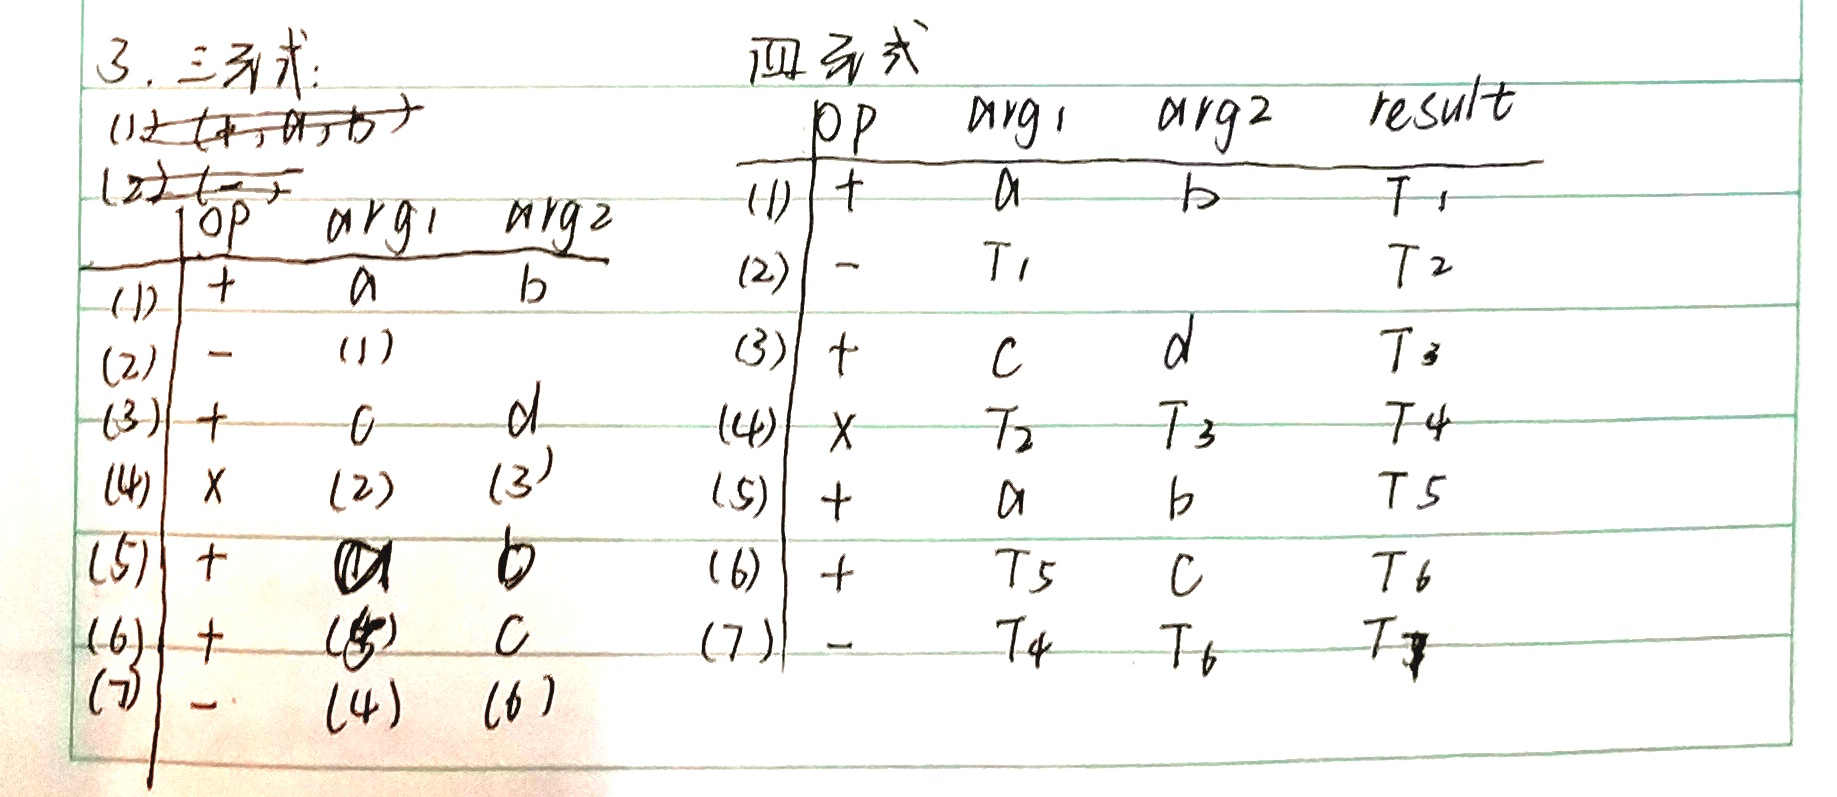 3. 三元式:
(1) (+, a, b)
(2) (-,
op arg1 arg2
(1) + a b
(2) - (1)
(3) + c d
(4) × (2) (3)
(5) + a b
(6) + (5) c
(7) - (4) (6)
四元式
op arg1 arg2 result
(1) + a b T1
(2) - T1 T2
(3) + c d T3
(4) × T2 T3 T4
(5) + a b T5
(6) + T5 c T6
(7) - T4 T6 T7